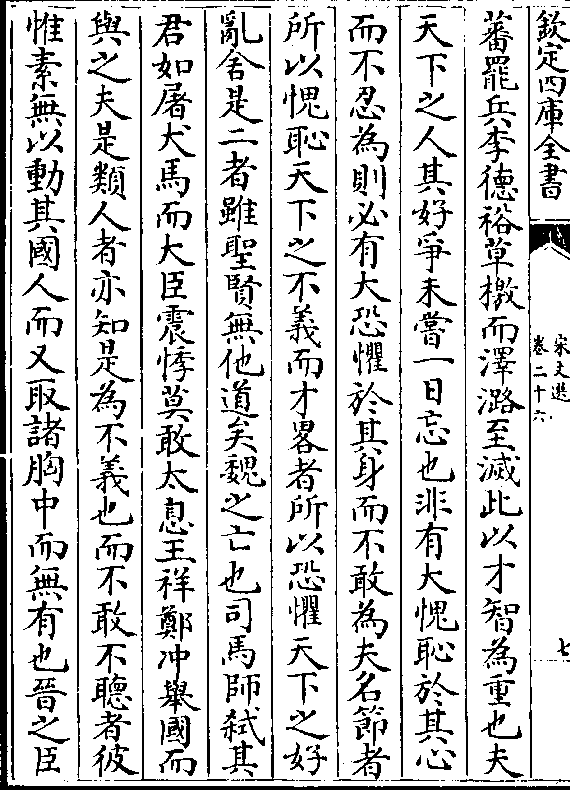 欽定四庫全書
宋文選
卷二十六
七
蕃罷兵李德裕草檄而澤潞至滅此以才智為重也夫
天下之人其好爭未嘗一日忘也非有大愧恥於其心
而不忍為則必有大恐懼於其身而不敢為夫名節者
所以愧恥天下之不義而才畧者所以恐懼天下之好
亂舍是二者雖聖賢無他道矣魏之亡也司馬師弑其
君如屠犬馬而大臣震悸莫敢太息王祥鄭冲舉國而
與之夫是類人者亦知是為不義也而不敢不聽者彼
惟素無以動其國人而又取諸胸中而無有也晉之臣